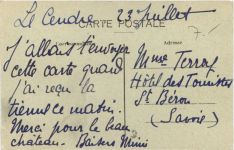 Le Cendre 23 Juillet
CARTE POSTALE
J'allais t'envoyer
cette carte quand
j'ai reçu la
tienne ce matin.
Merci pour le beau
château. Baisers Mimi
Adresse
Mme Terroy
Hôtel des Touristes
St Béron
(Savoie)